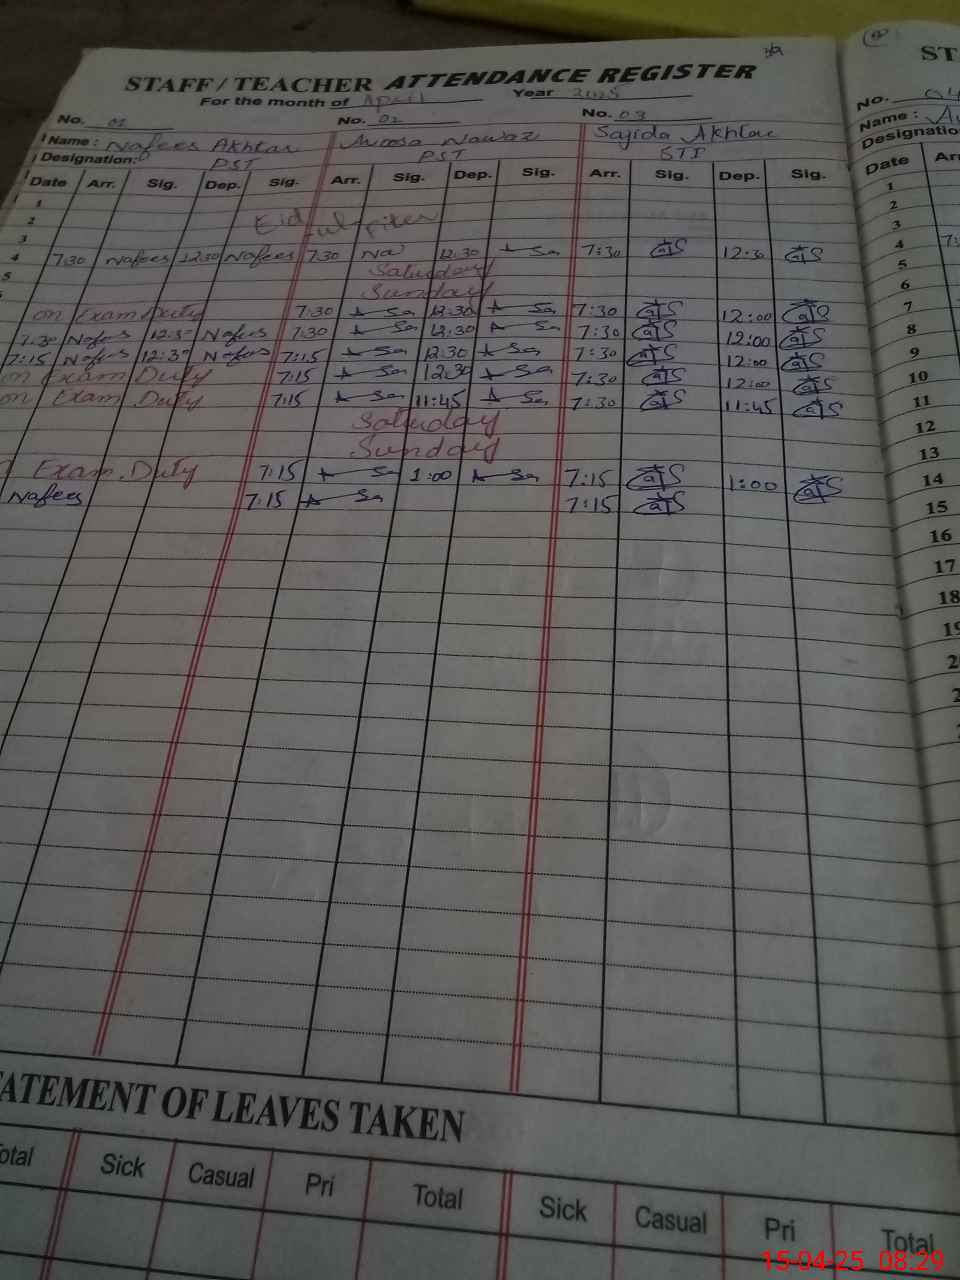 STAFF / TEACHER ATTENDANCE REGISTER
For the month of April Year 2025
No. 01 No. 02 No. 03
Name : Nafees Akhtar Nawaz Sajida Akhtar
Designation: PST PST STI
Date Arr. Sig. Dep. Sig. Arr. Sig. Dep. Sig. Arr. Sig. Dep. Sig.
1
2 Eid ul fiter
3
4 7:30 Nafees 12:30 Nafees 7:30 Na 12:30 Sa 7:30 12:30
5 Saturday
Sunday
on Exam Duty 7:30 Sa 12:30 Sa 7:30 12:00
7:30 Nafees 12:3 Nafees 7:30 Sa 12:30 Sa 7:30 12:00
7:15 Nafees 12:3 Nafees 7:15 Sa 12:30 Sa 7:30 12:00
on Exam Duty 7:15 Sa 12:30 Sa 7:30 12:00
on Exam Duty 7:15 Sa 11:45 Sa 7:30 11:45
Saturday
Sunday
Exam Duty 7:15 Sa 1:00 Sa 7:15 1:00
Nafees 7:15 Sa 7:15
STATEMENT OF LEAVES TAKEN
Total Sick Casual Pri Total Sick Casual Pri Total
ST
No. 04
Name :
Designatio
Date Arr
1
2
3
4 7:
5
6
7
8
9
10
11
12
13
14
15
16
17
18
19
2
2
15-04-25 08:29